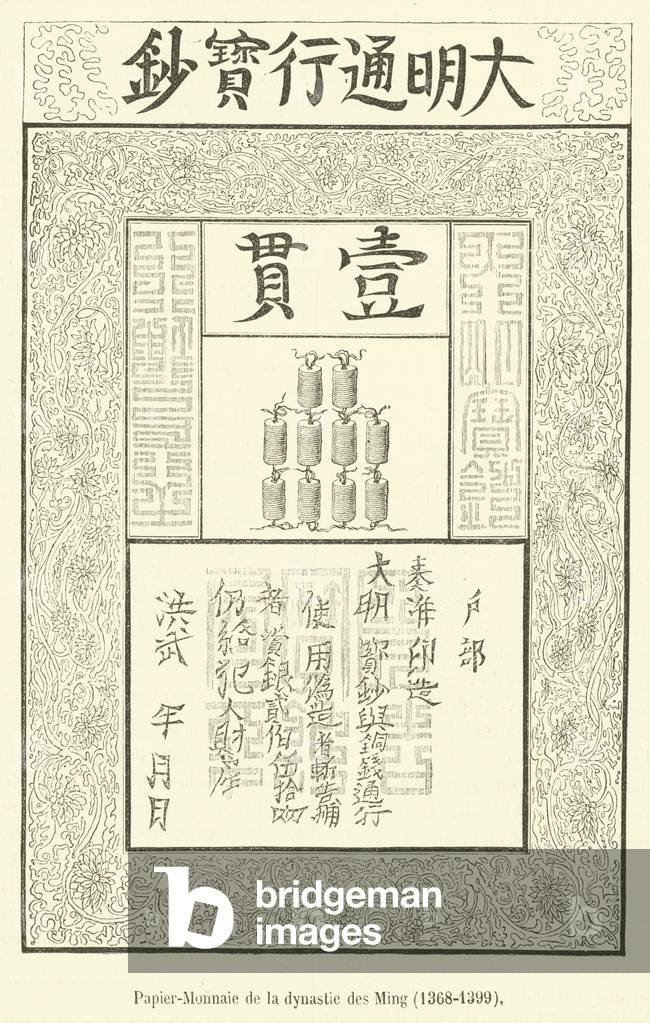 大明通行寶鈔
壹貫
戶部
奏准印造
大明寶鈔與銅錢通行
使用偽造者斬告捕
者賞銀貳伯伍拾兩
仍給犯人財產
洪武 年 月 日
bridgeman
images
Papier-Monnaie de la dynastie des Ming (1368-1399),